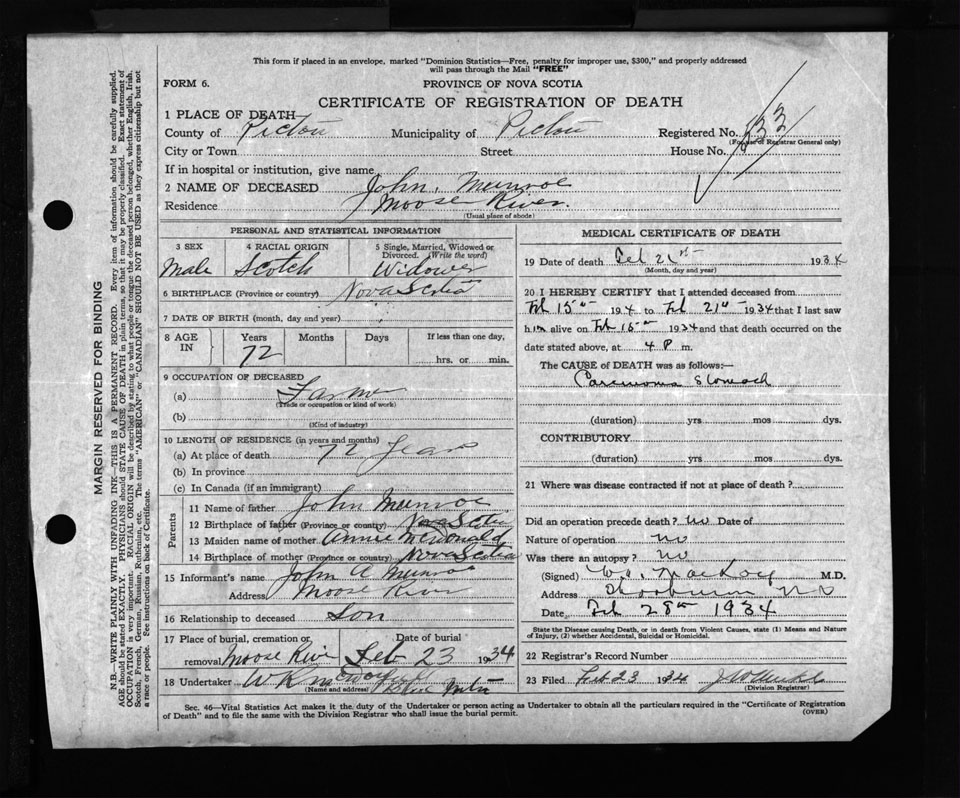 This form if placed in an envelope, marked "Dominion Statistics—Free, penalty for improper use, $300," and properly addressed
will pass through the Mail "FREE"
FORM 6.
PROVINCE OF NOVA SCOTIA
CERTIFICATE OF REGISTRATION OF DEATH
1 PLACE OF DEATH
County of Pictou Municipality of Pictou Registered No.
(For use of Registrar General only)
City or Town Street House No.
If in hospital or institution, give name
2 NAME OF DECEASED John Munroe
Residence Moose River
(Usual place of abode)
PERSONAL AND STATISTICAL INFORMATION
3 SEX 4 RACIAL ORIGIN 5 Single, Married, Widowed or
Divorced. (Write the word)
Male Scotch Widower
6 BIRTHPLACE (Province or country) Nova Scotia
7 DATE OF BIRTH (month, day and year)
8 AGE IN Years Months Days If less than one day,
72 hrs. or min.
9 OCCUPATION OF DECEASED
(a) Farmer
(Trade or occupation or kind of work)
(b)
(Kind of industry)
10 LENGTH OF RESIDENCE (in years and months)
(a) At place of death 72 Years
(b) In province
(c) In Canada (if an immigrant)
Parents
11 Name of father John Munroe
12 Birthplace of father (Province or country) Nova Scotia
13 Maiden name of mother Annie McDonald
14 Birthplace of mother (Province or country) Nova Scotia
15 Informant's name John A Munroe
Address Moose River
16 Relationship to deceased Son
17 Place of burial, cremation or Date of burial
removal Moose River Feb 23 1934
18 Undertaker W R
(Name and address)
MEDICAL CERTIFICATE OF DEATH
19 Date of death Feb 21st 1934
(Month, day and year)
20 I HEREBY CERTIFY that I attended deceased from
Feb 15th 1934 to Feb 21st 1934 that I last saw
him alive on Feb 15th 1934 and that death occurred on the
date stated above, at 4 P m.
The CAUSE OF DEATH was as follows:
Carcinoma Stomach
(duration) yrs mos dys.
CONTRIBUTORY
(duration) yrs mos dys.
21 Where was disease contracted if not at place of death?
Did an operation precede death? no Date of
Nature of operation no
Was there an autopsy? no
(Signed) M.D.
Address Thorburn N S
Date Feb 28th 1934
State the Disease causing Death, or in death from Violent Causes, state (1) Means and Nature
of Injury, (2) whether Accidental, Suicidal or Homicidal.
22 Registrar's Record Number
23 Filed Feb 23 1934
(Division Registrar)
Sec. 46—Vital Statistics Act makes it the duty of the Undertaker or person acting as Undertaker to obtain all the particulars required in the "Certificate of Registration
of Death" and to file the same with the Division Registrar who shall issue the burial permit.
(OVER)
MARGIN RESERVED FOR BINDING
N.B.—WRITE PLAINLY WITH UNFADING INK—THIS IS A PERMANENT RECORD. Every item of information should be carefully supplied.
AGE should be stated EXACTLY. PHYSICIANS should STATE CAUSE OF DEATH in plain terms, so that it may be properly classified. Exact statement of
OCCUPATION is very important. RACIAL ORIGIN will be described by stating to what people or tongue the deceased person belonged, whether English, Irish,
Scotch, French, German, Russian, Ruthenian, etc. The terms "AMERICAN" or "CANADIAN" SHOULD NOT BE USED as they express citizenship but not
a race or people. See instructions on back of Certificate.